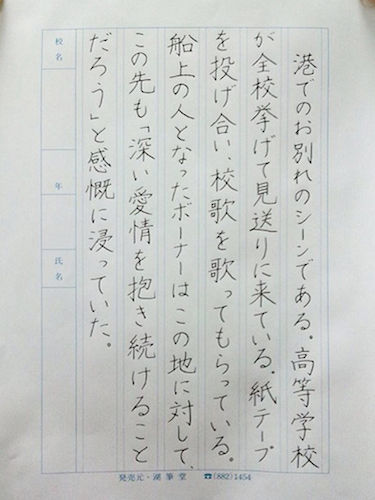 港でのお別れのシーンである。高等学校
が全校挙げて見送りに来ている。紙テープ
を投げ合い、校歌を歌ってもらっている。
船上の人となったボーナーはこの地に対して、
この先も「深い愛情を抱き続けること
だろう」と感慨に浸っていた。
校名
年
氏名
発売元・湖筆堂 ☎(882)1454